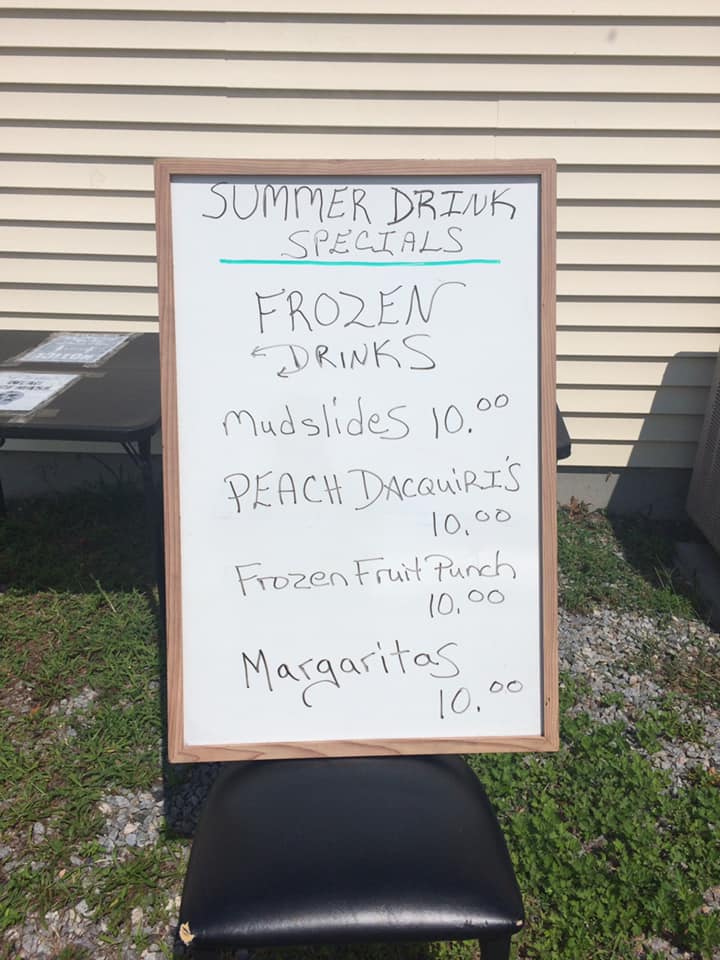 SUMMER DRINK
SPECIALS
FROZEN
DRINKS
Mudslides 10.00
PEACH DACQUIRI'S
10.00
Frozen Fruit Punch
10.00
Margaritas
10.00